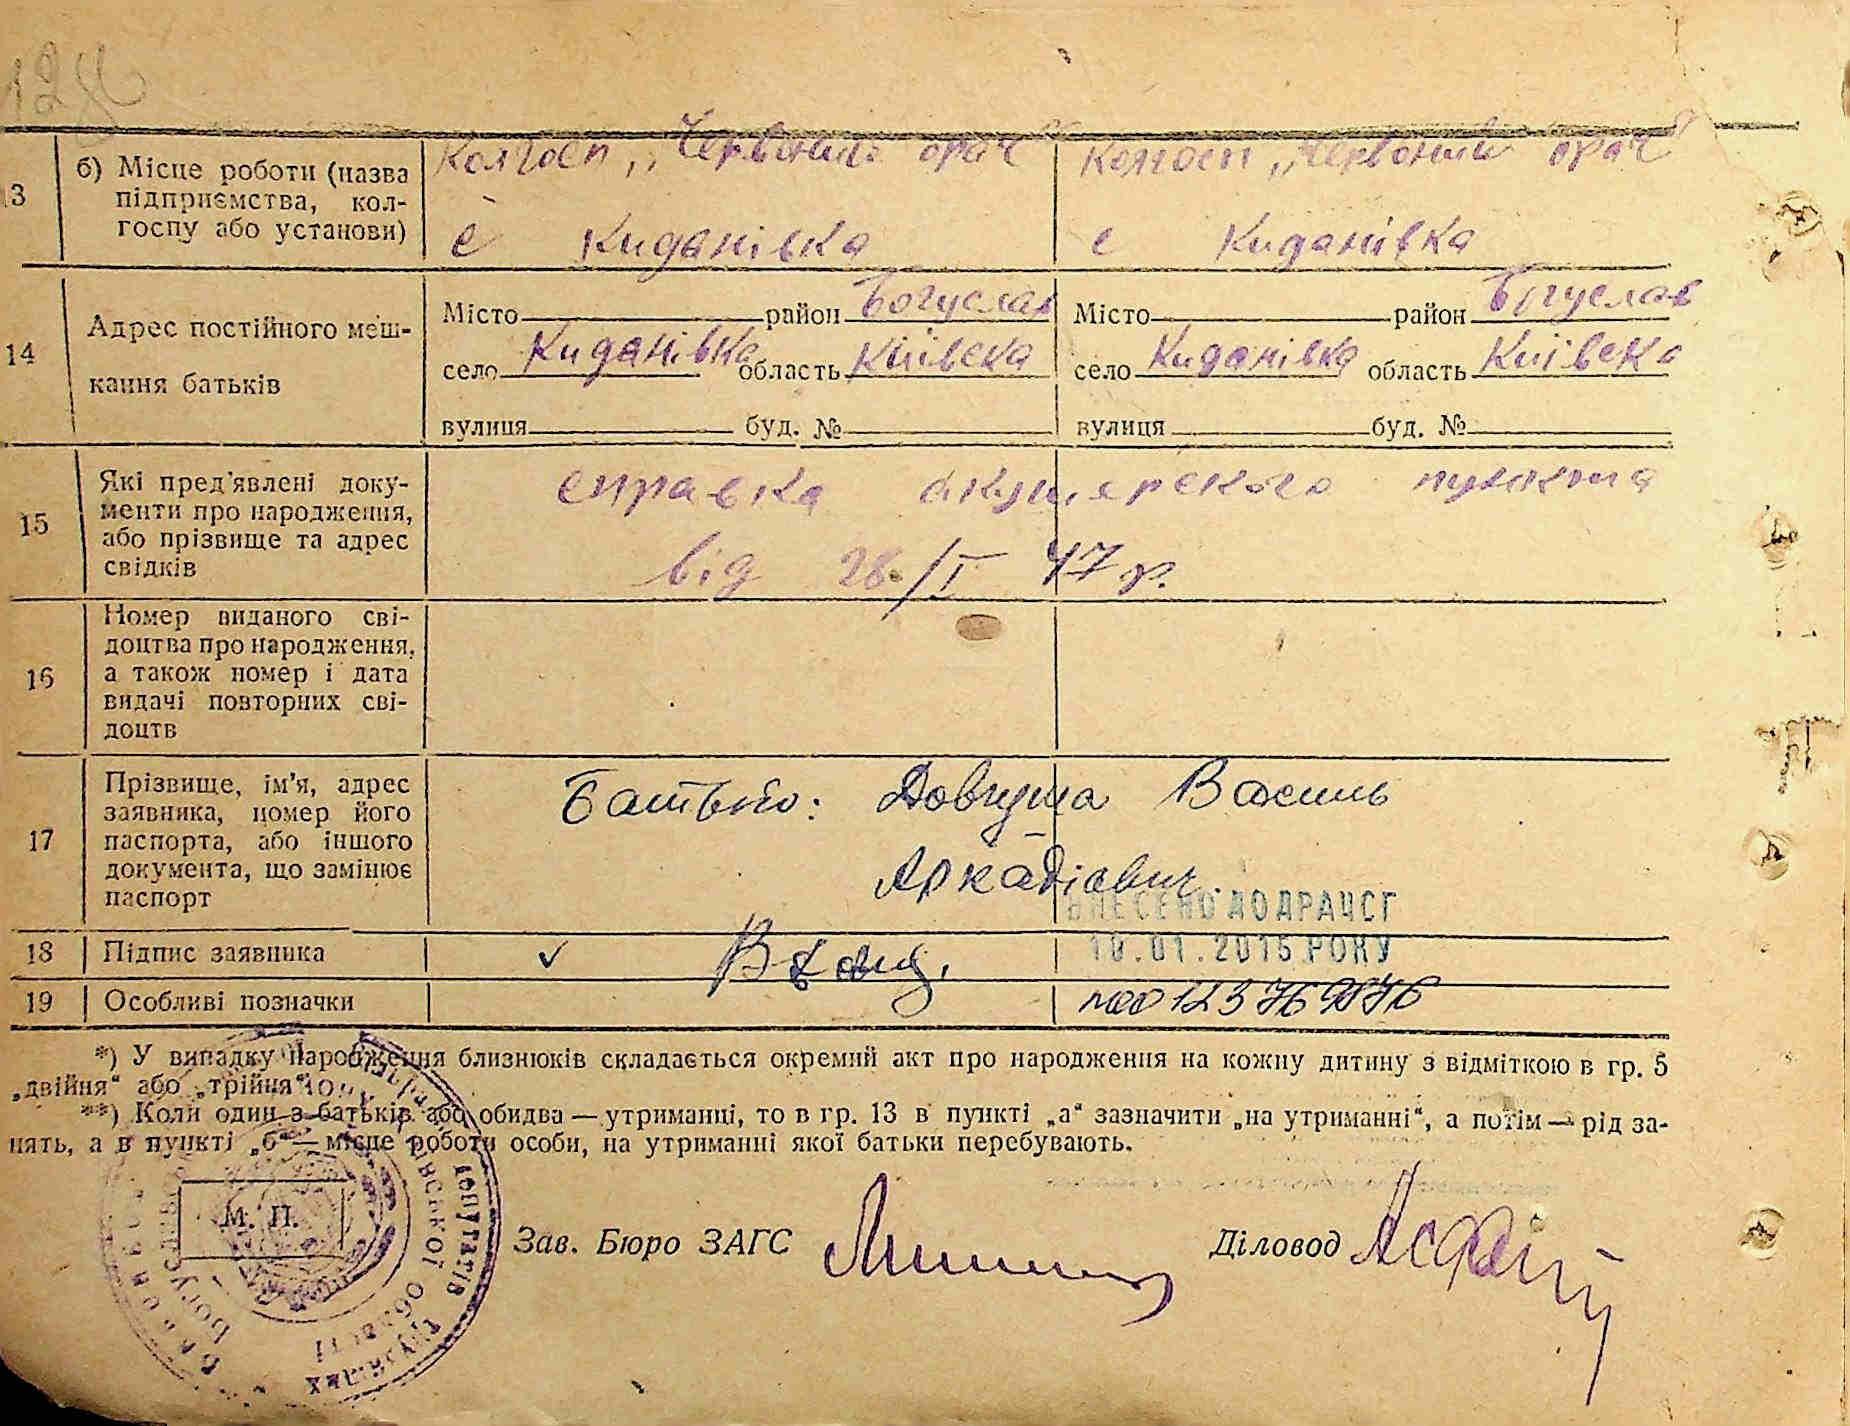 128
13
б) Місце роботи (назва
підприємства, кол-
госпу або установи)
Колгосп „Червоний орач"
с Киданівка
Колгосп „Червоний орач"
с Киданівка
14
Адрес постійного меш-
кання батьків
Місто район Богуслав
село Киданівка область Київська
вулиця буд. №
Місто район Богуслав
село Киданівка область Київська
вулиця буд. №
15
Які пред'явлені доку-
менти про народження,
або прізвище та адрес
свідків
справка акушерского пункта
від 28/I 47 р.
16
Номер виданого сві-
доцтва про народження,
а також номер і дата
видачі повторних сві-
доцтв
17
Прізвище, ім'я, адрес
заявника, номер його
паспорта, або іншого
документа, що замінює
паспорт
Батько: Довгуша Василь
Аркадіевич.
ВНЕСЕНО ДО ДРАЦСГ
18
Підпис заявника
✓
10.01.2015 РОКУ
19
Особливі позначки
*) У випадку народження близнюків складається окремий акт про народження на кожну дитину з відміткою в гр. 5
„двійня“ або „трійня“.
**) Коли один з батьків або обидва — утриманці, то в гр. 13 в пункті „а“ зазначити „на утриманні“, а потім — рід за-
нять, а в пункті „б“ — місце роботи особи, на утриманні якої батьки перебувають.
М. П.
Зав. Бюро ЗАГС
Діловод